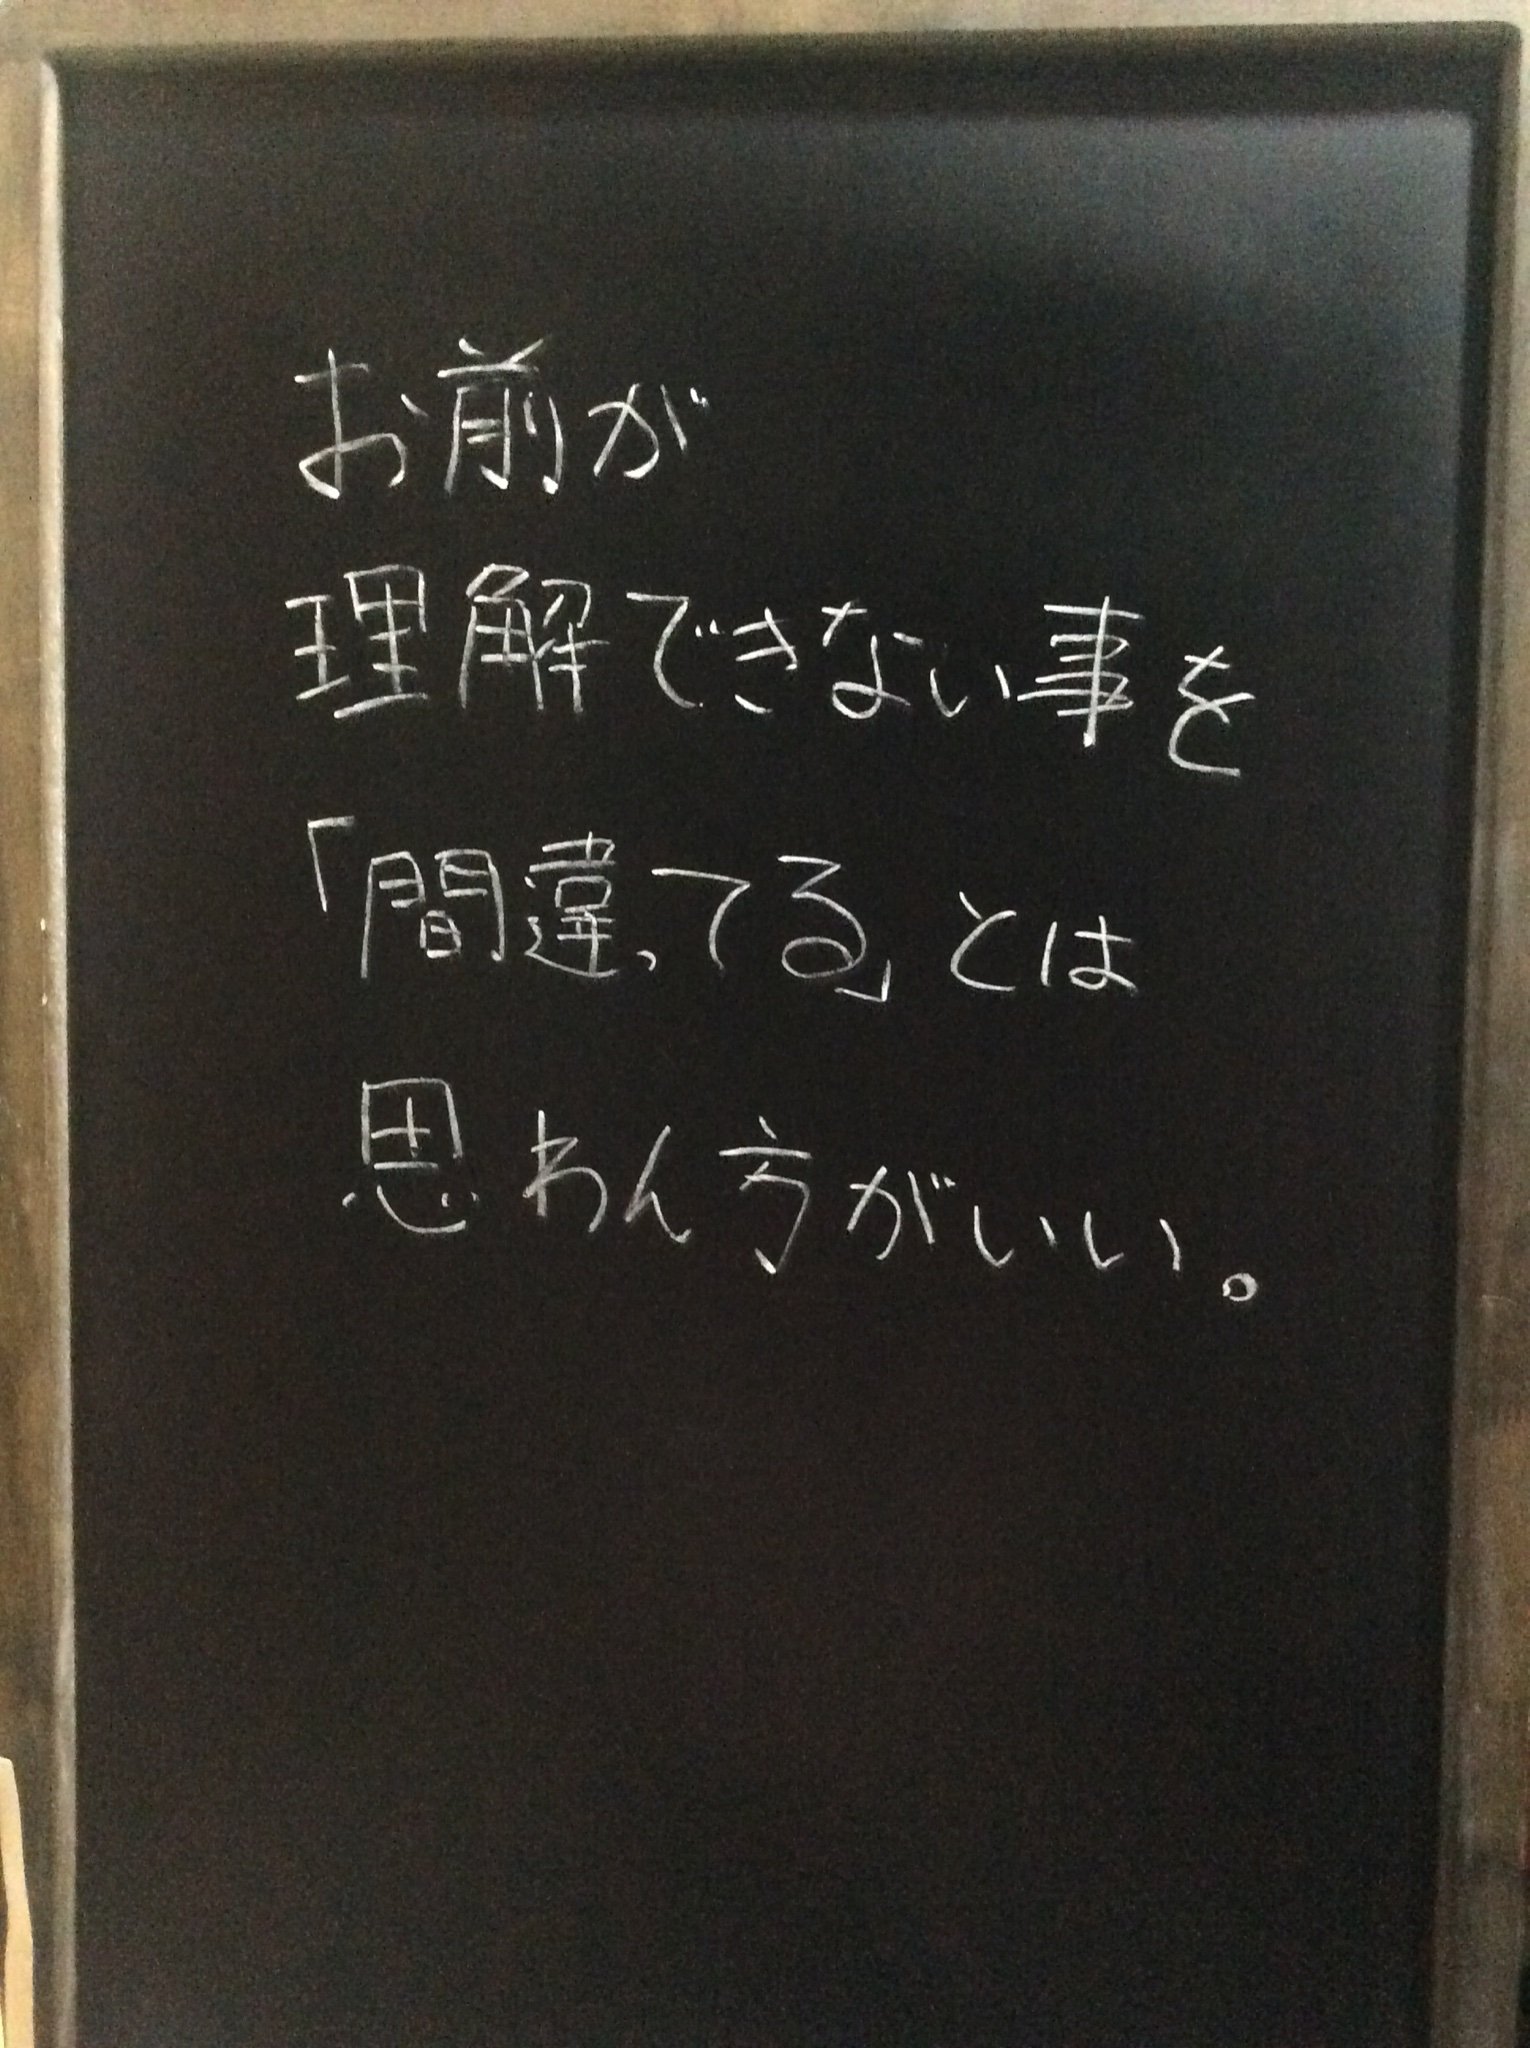 お前が
理解できない事を
「間違ってる」とは
思わん方がいい。